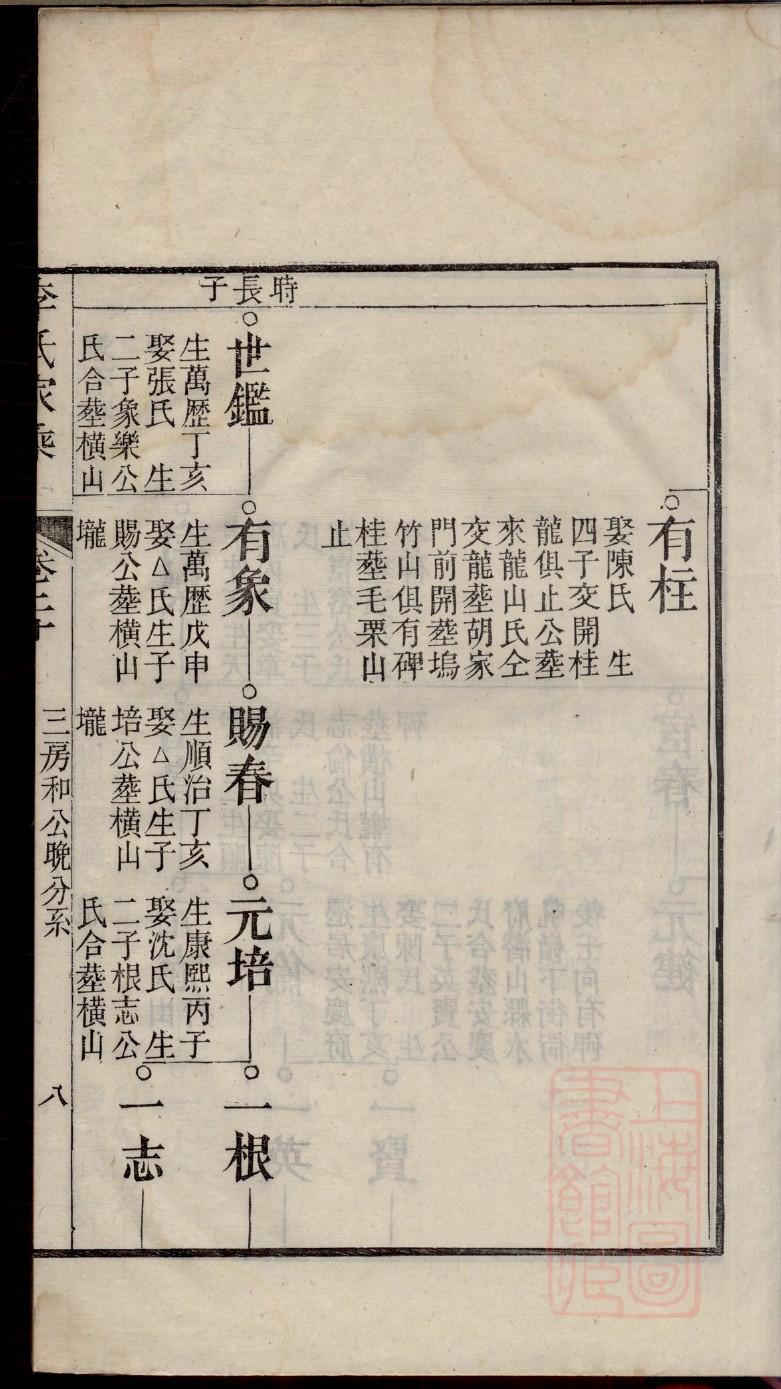 有柱
娶陳氏　生
四子交開桂
龍俱止公塟
來龍山氏仝
交龍塟胡家
門前開塟塢
竹山俱有碑
桂塟毛栗山
止
時長子
世鑑
生萬歷丁亥
娶張氏　生
二子象樂公
氏合塟橫山
有象
生萬歷戊申
娶△氏生子
賜公塟橫山
壠
賜春
生順治丁亥
娶△氏生子
培公塟橫山
壠
元培
生康熙丙子
娶沈氏　生
二子根志公
氏合塟橫山
一根
一志
李氏家乘
卷二十
三房和公晚分系
八
上海圖
書館藏